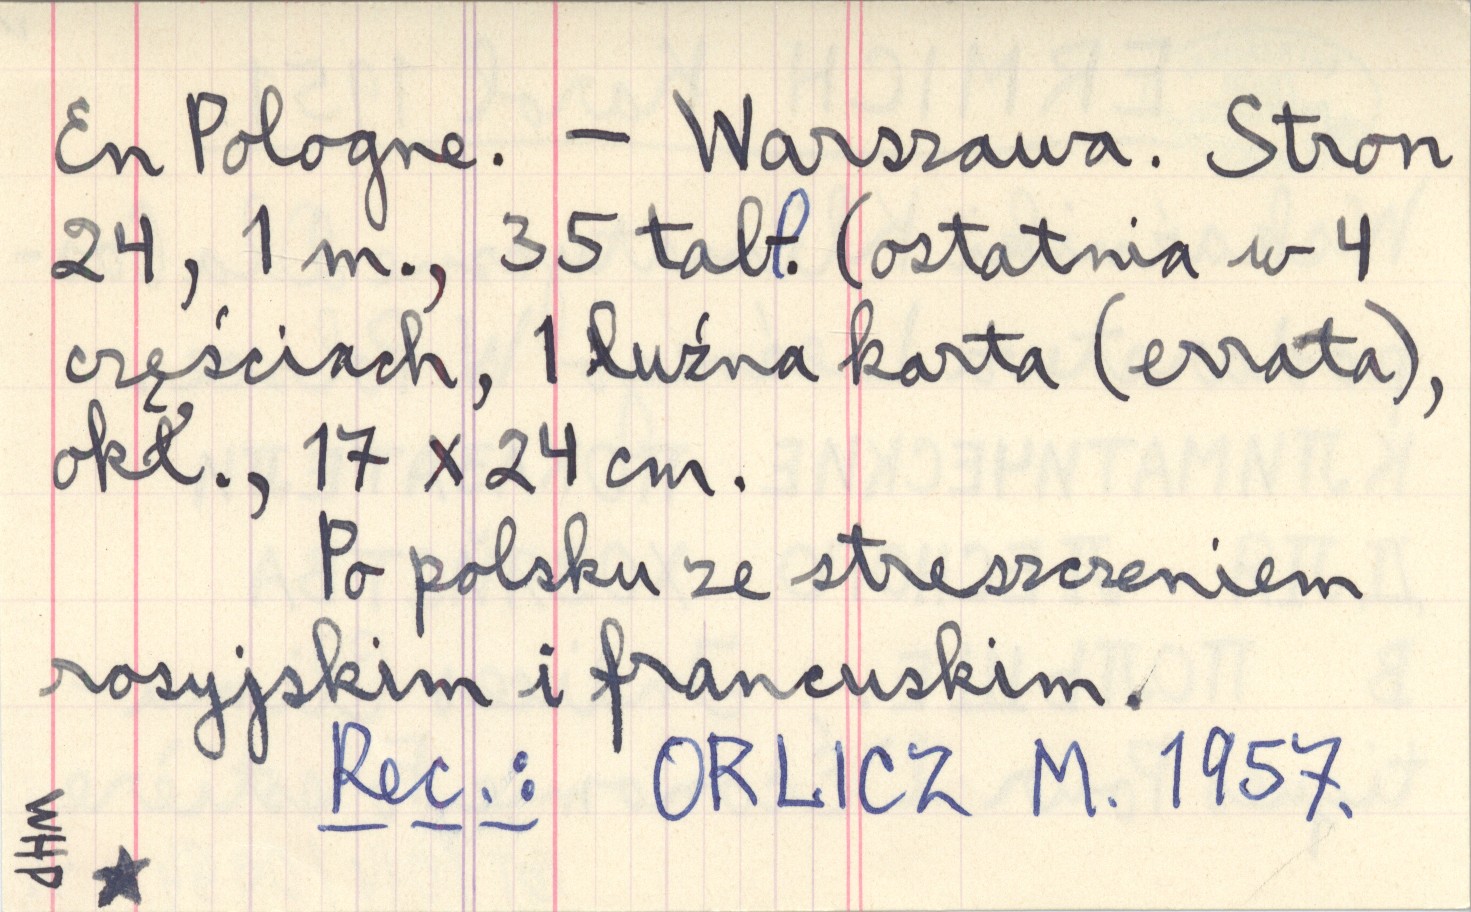 En Pologne. – Warszawa. Stron
24, 1 m., 35 tabl. (ostatnia w 4
częściach, 1 luźna karta (errata),
okł., 17 x 24 cm.
Po polsku ze streszczeniem
rosyjskim i francuskim.
Rec.: ORLICZ M. 1957.
WHP